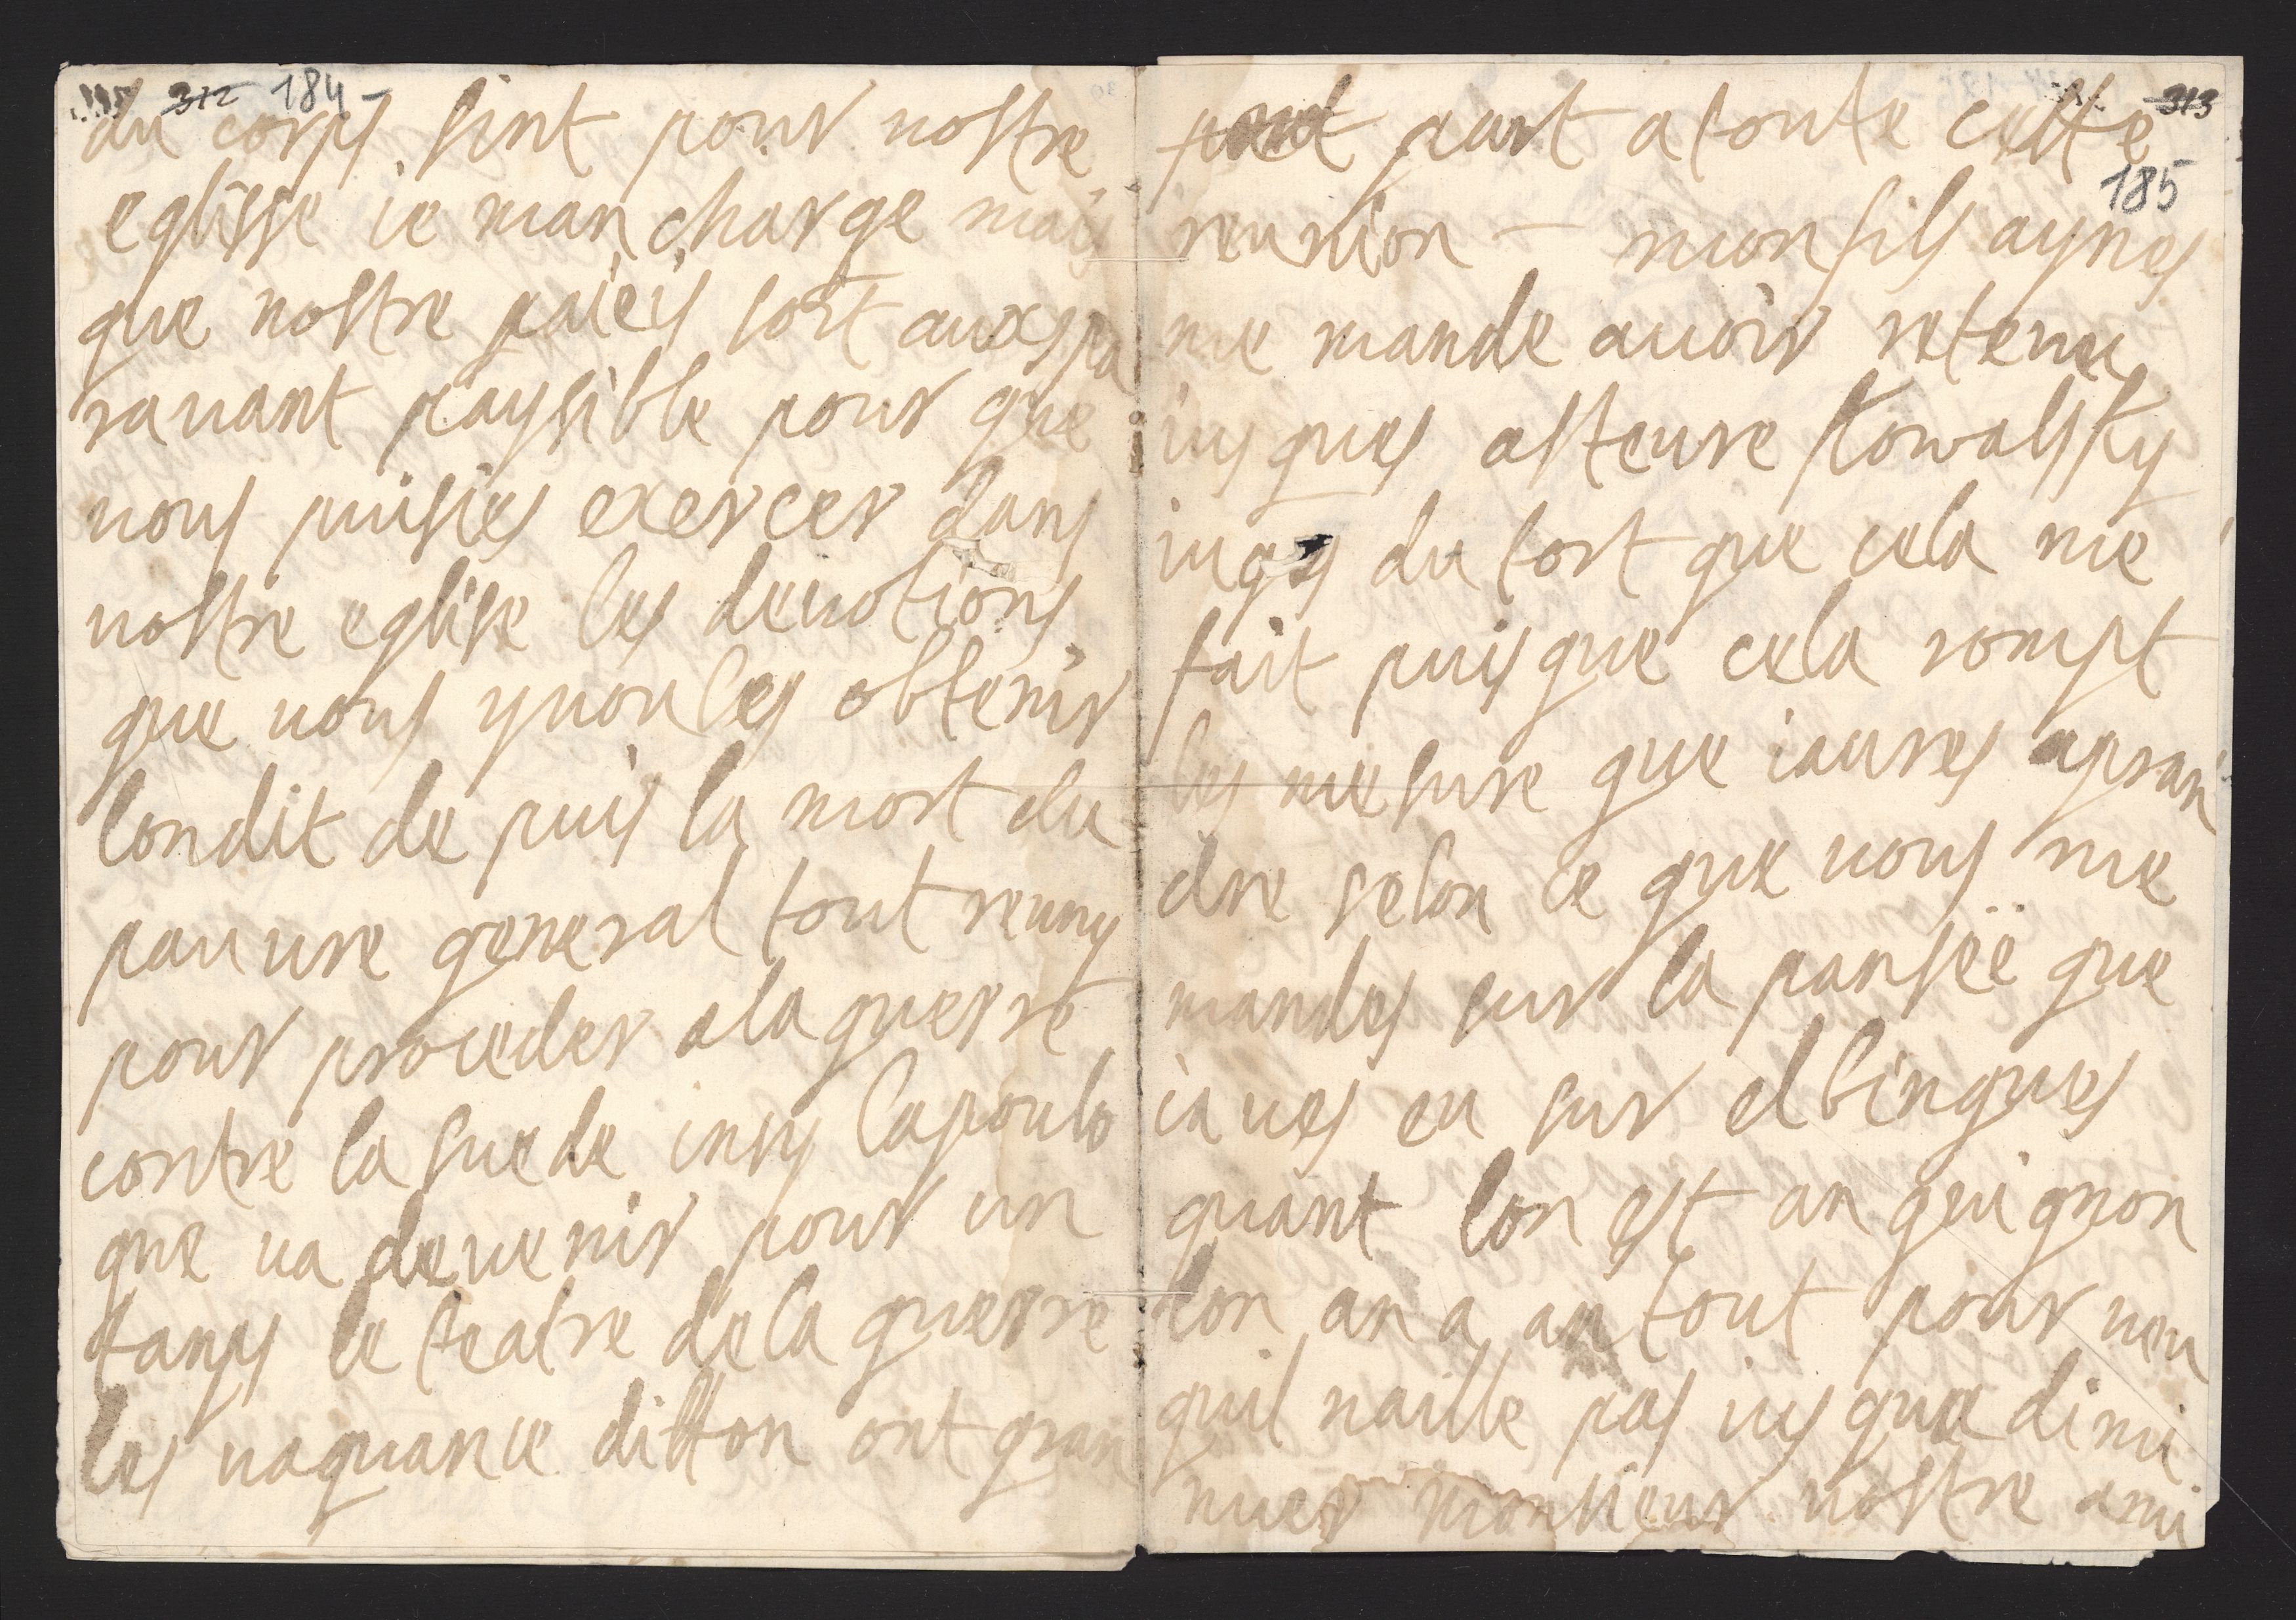 312 184 -
du corps sint pour vostre
eglisse ie man charge mais
que nostre païeis soit auxspa
rauant paysible pour que
vous puisies exercer dans
vostre eglise les deuotions
que vous y voules obtenir
londit de puis la mort du
pauure general tout reuny
pour proceder ala guerre
contre la suede insy lapoulo
que ua deuenir pour un
tamps le teatre dela guerre
les uaquance ditton ont gran
part a toute cette
313
185
reunion – mon fils aynes
me mande auoir retenu
iusques asteure Kowalsky
iuges du tort que cela me
fait puis que cela rompt
les mesure que iaures apran
dre selon ce que vous me
mandes sur la panseë que
iaues eu sur elbingues
quant lon est an guignon
lon an a an tout pour ueu
quil naille pas iusqua dimi
nuer monsieur vostre ami